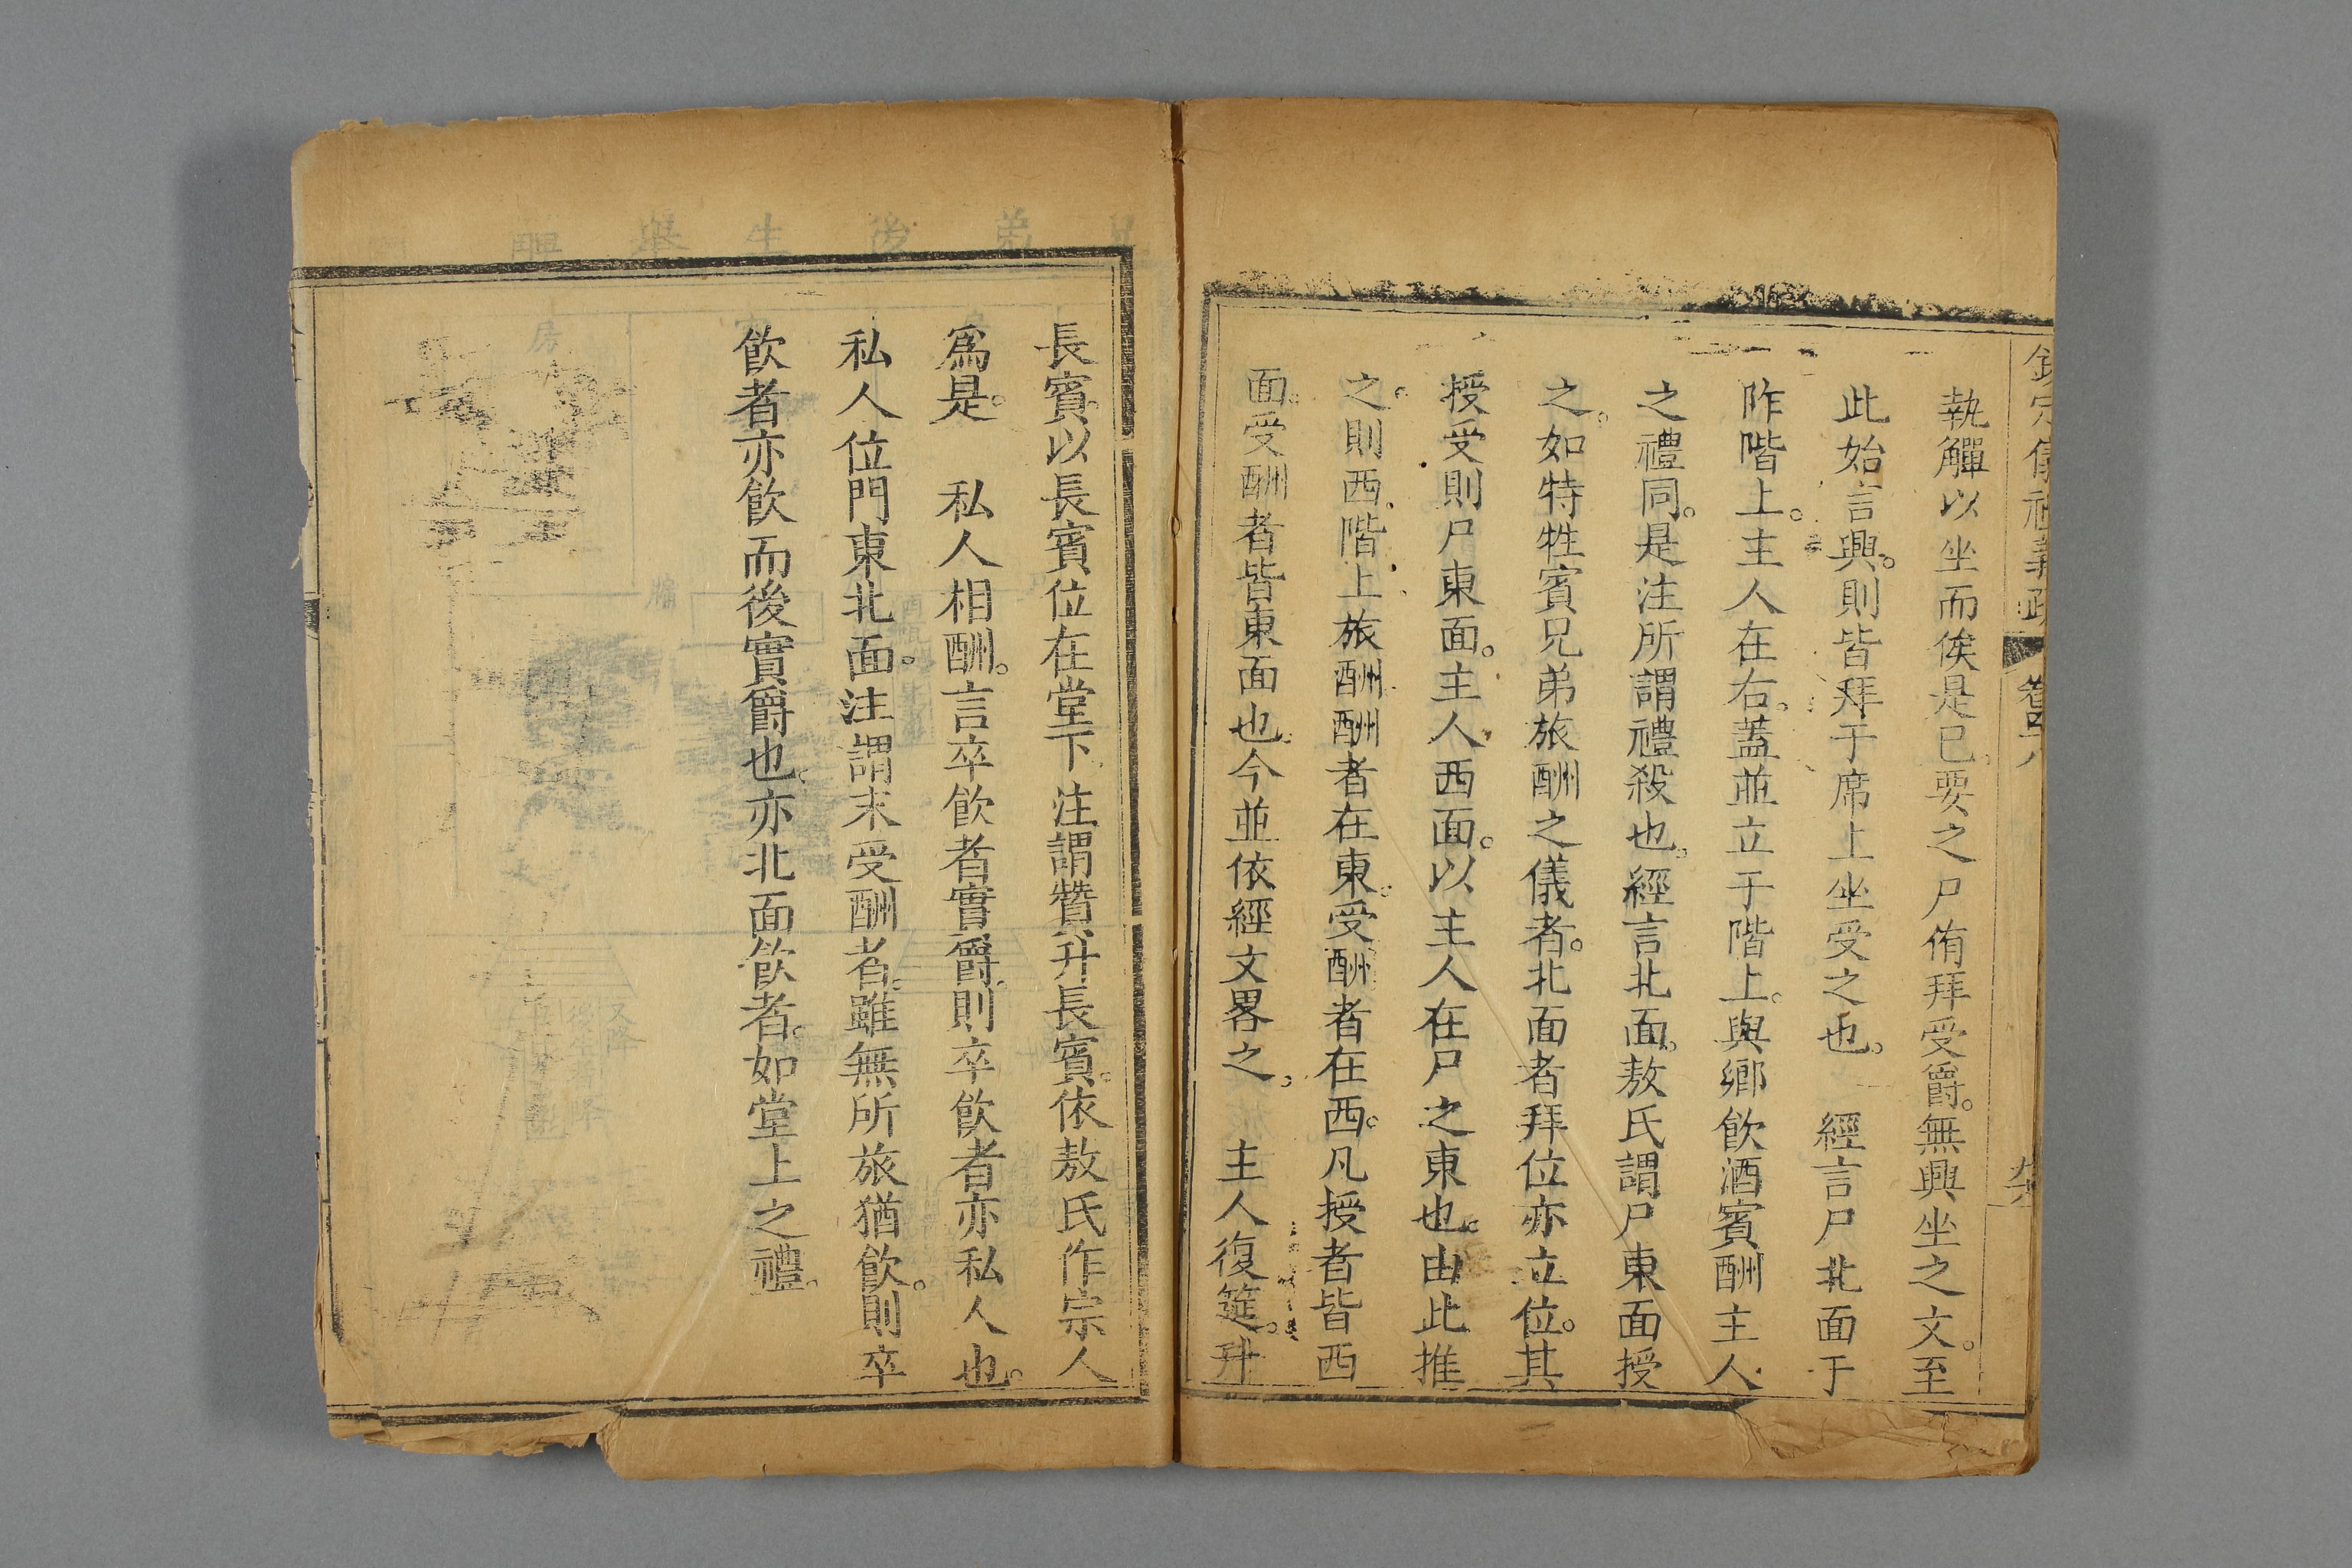 欽定儀禮義疏 卷四十八
執觶以坐而俟是已要之尸侑拜受爵。無興坐之文。至
此始言興。則皆拜于席上坐受之也。 經言尸北面于
阼階上。主人在右。蓋並立于階上。與鄉飲酒賓酬主人
之禮同。是注所謂禮殺也。經言北面。敖氏謂尸東面授
之。如特牲賓兄弟旅酬之儀者。北面者拜位亦立位。其
授受則尸東面。主人西面。以主人在尸之東也。由此推
之。則西階上旅酬酬者在東。受酬者在西。凡授者皆西
面。受酬者皆東面也。今並依經文畧之。 主人復筵。升
長賓。以長賓位在堂下注謂贊升長賓。依敖氏作宗人
爲是。 私人相酬。言卒飲者實爵。則卒飲者亦私人也。
私人位門東北面。注謂末受酬者。雖無所旅猶飲。則卒
飲者亦飲而後實爵也。亦北面飲者。如堂上之禮。